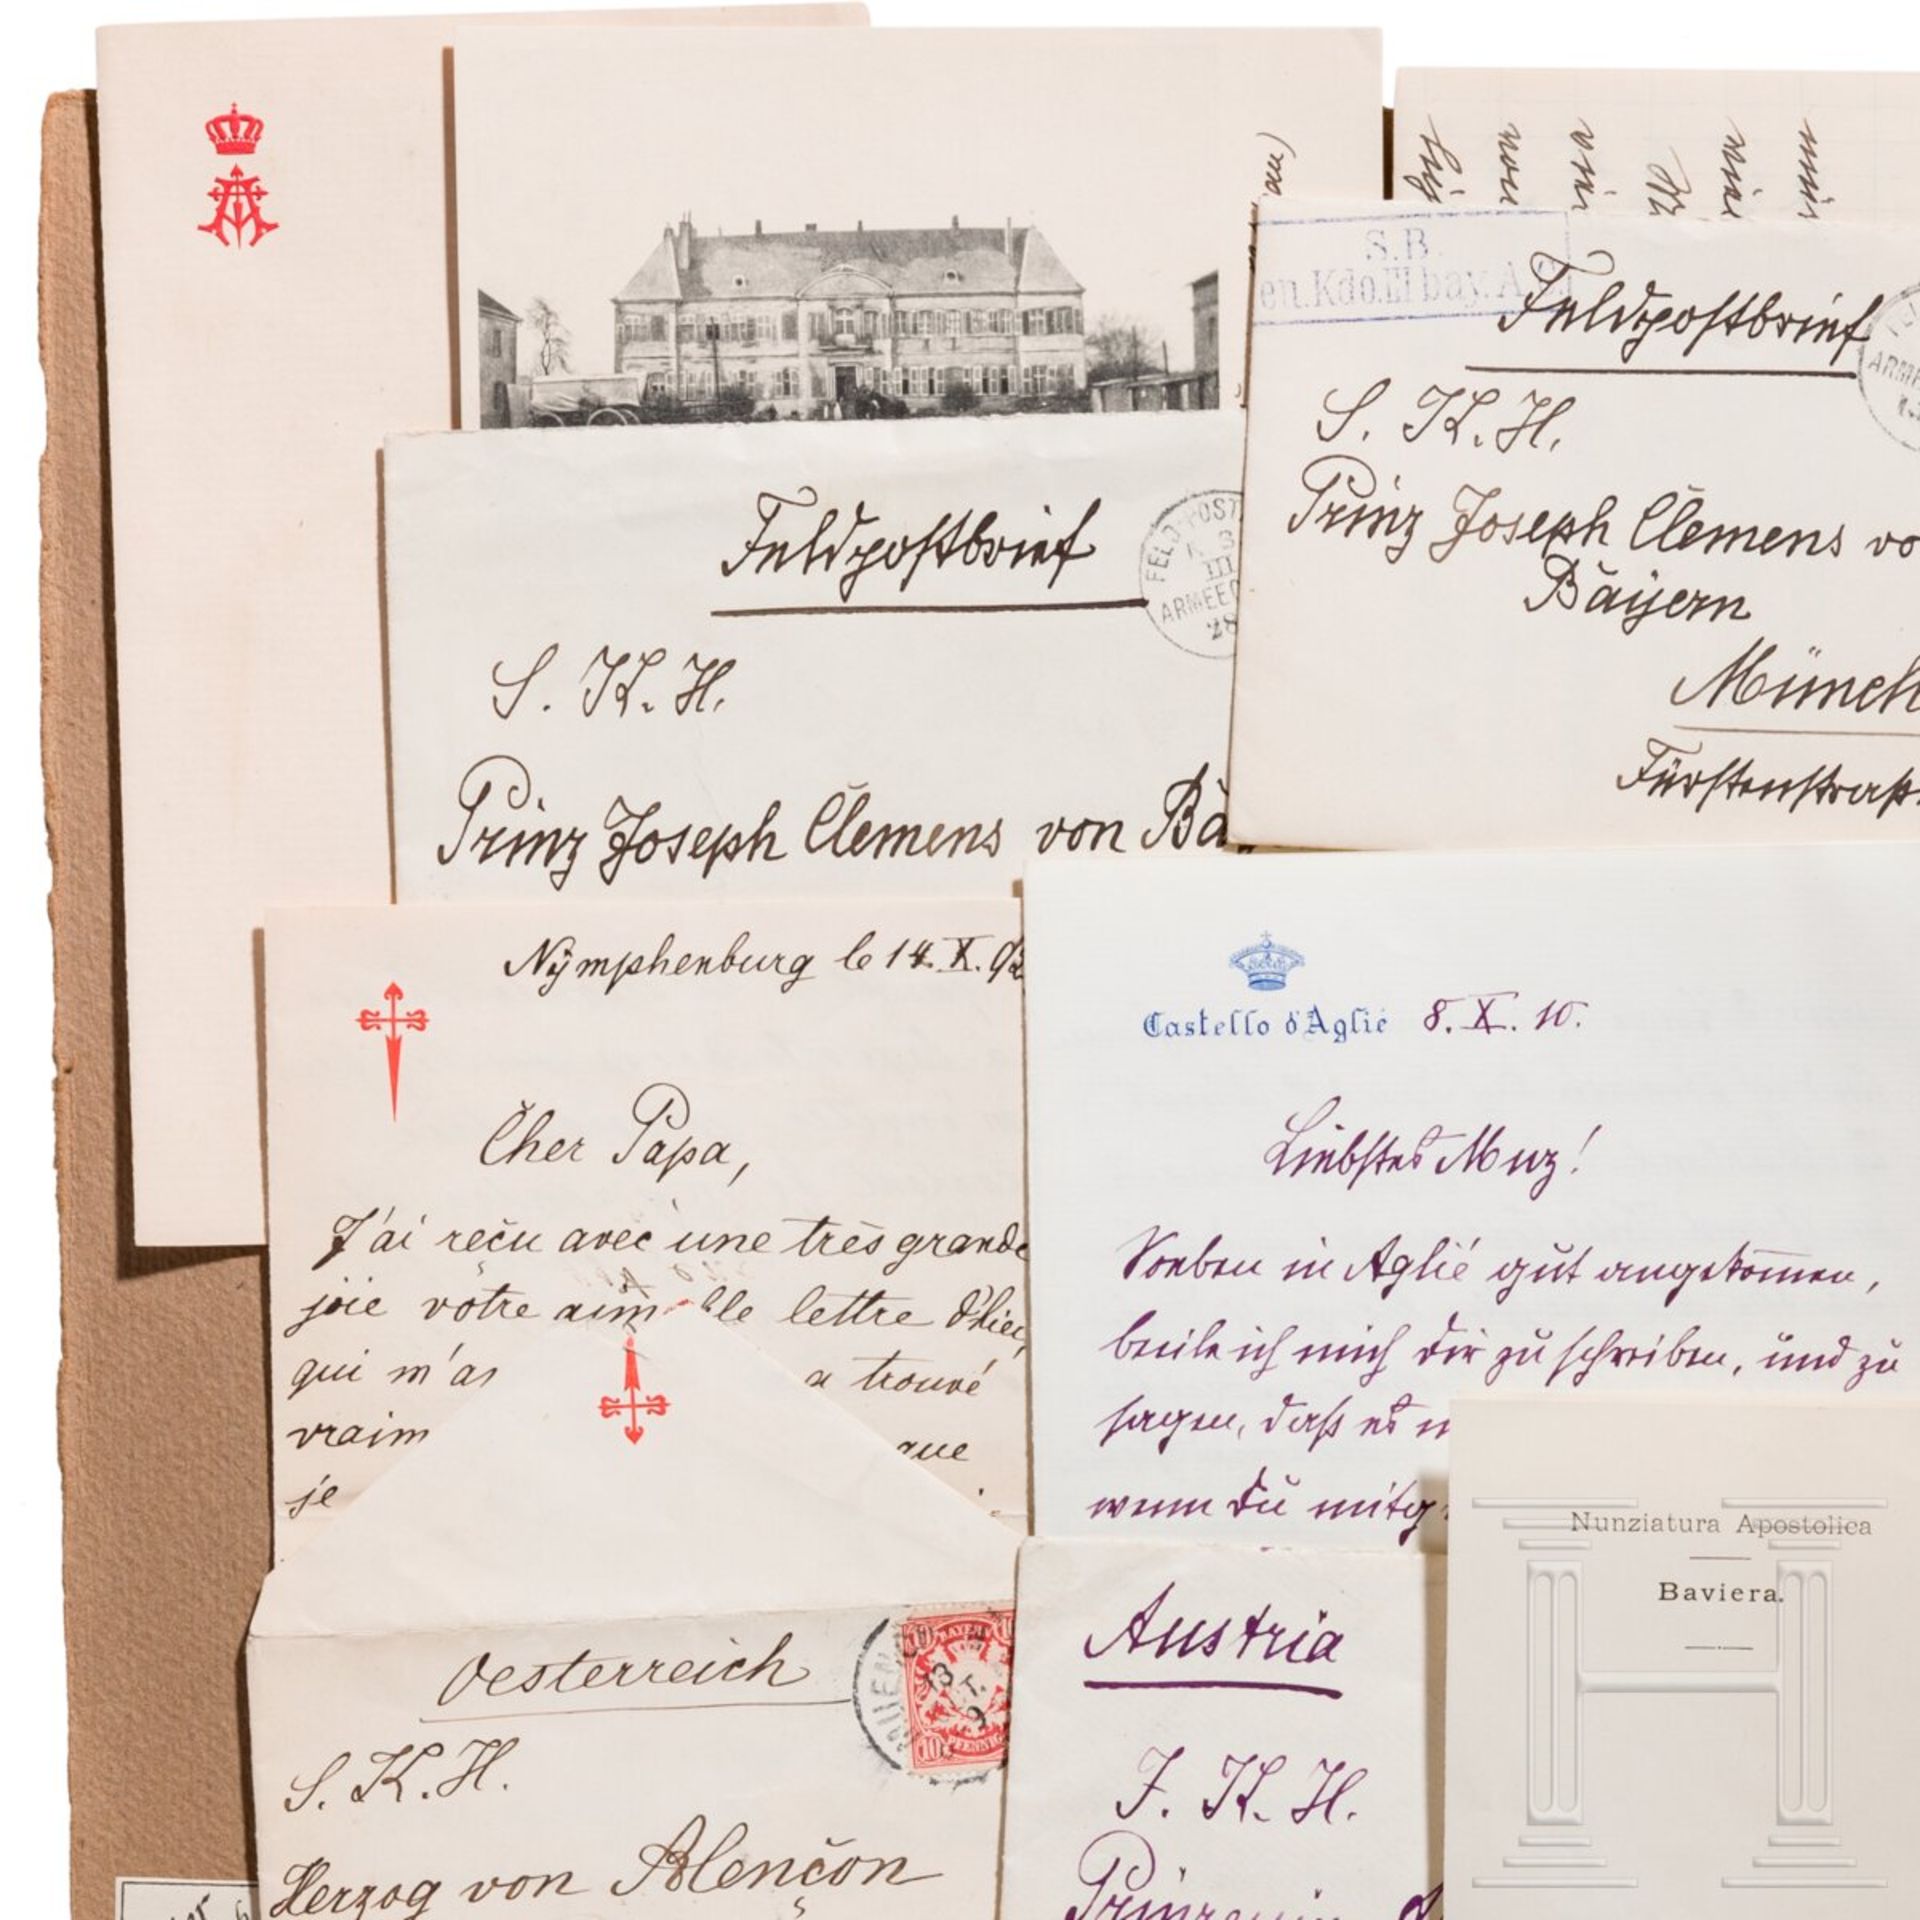 S.B.
en.Kdo.III bay. A.
Feldpostbrief
S. K. H.
Prinz Joseph Clemens vo
Bayern
Münch
Fürstenstraß
Feldpostbrief
FELD-POST
III
ARMEEC
28
S. K. H.
Prinz Joseph Clemens von Ba
Nymphenburg le 14. X.
Cher Papa,
J'ai reçu avec une très grande
joie votre aim ble lettre d'hier,
qui m'a
a trouvé
vraim
que
je
Castello d'Agliè 8. X. 10.
Liebstes Muz!
Soeben in Aglié gut angekom̄en,
beeile ich mich Dir zu schreiben, und zu
sagen, daß es
wenn Du mitg
Nunziatura Apostolica
Baviera.
Oesterreich
BAYERN
10
PFENNIG
S. K. H.
Herzog von Alençon
Austria
I. K. H.